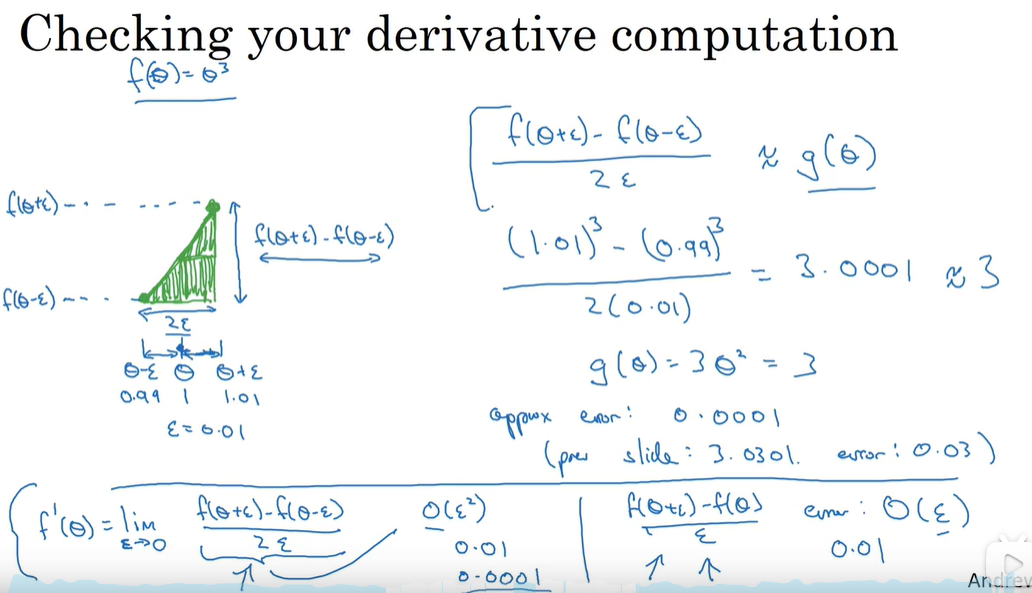 Checking your derivative computation
f(θ) = θ³
f(θ+ε) - f(θ-ε)
2ε
≈ g(θ)
f(θ+ε)
f(θ+ε) - f(θ-ε)
f(θ-ε)
2ε
θ-ε θ θ+ε
0.99 1 1.01
ε = 0.01
(1.01)³ - (0.99)³
2(0.01)
= 3.0001 ≈ 3
g(θ) = 3θ² = 3
approx error: 0.0001
(prev slide: 3.0301. error: 0.03)
f'(θ) = lim ε→0
f(θ+ε) - f(θ-ε)
2ε
O(ε²)
0.01
0.0001
f(θ+ε) - f(θ)
ε
error: O(ε)
0.01
Andrew